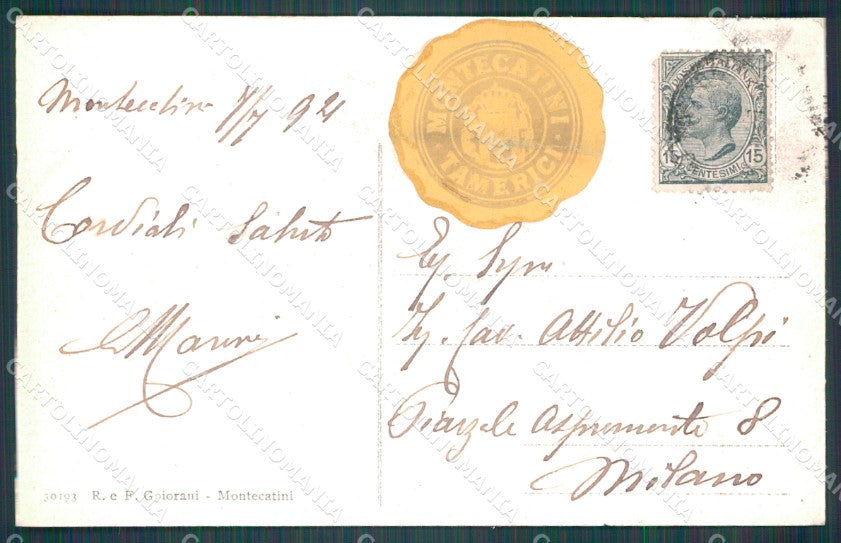 Montecatini 1/7 921
Cordiali Saluti
30193 R. e F. Goiorani - Montecatini
MONTECATINI
TAMERICI
POSTE ITALIANE
15 15
CENTESIMI
Eg. Sigr
Ing. Cav. Attilio Volpi
Piazzale Aspromonte 8
Milano
CARTOLINOMANIA